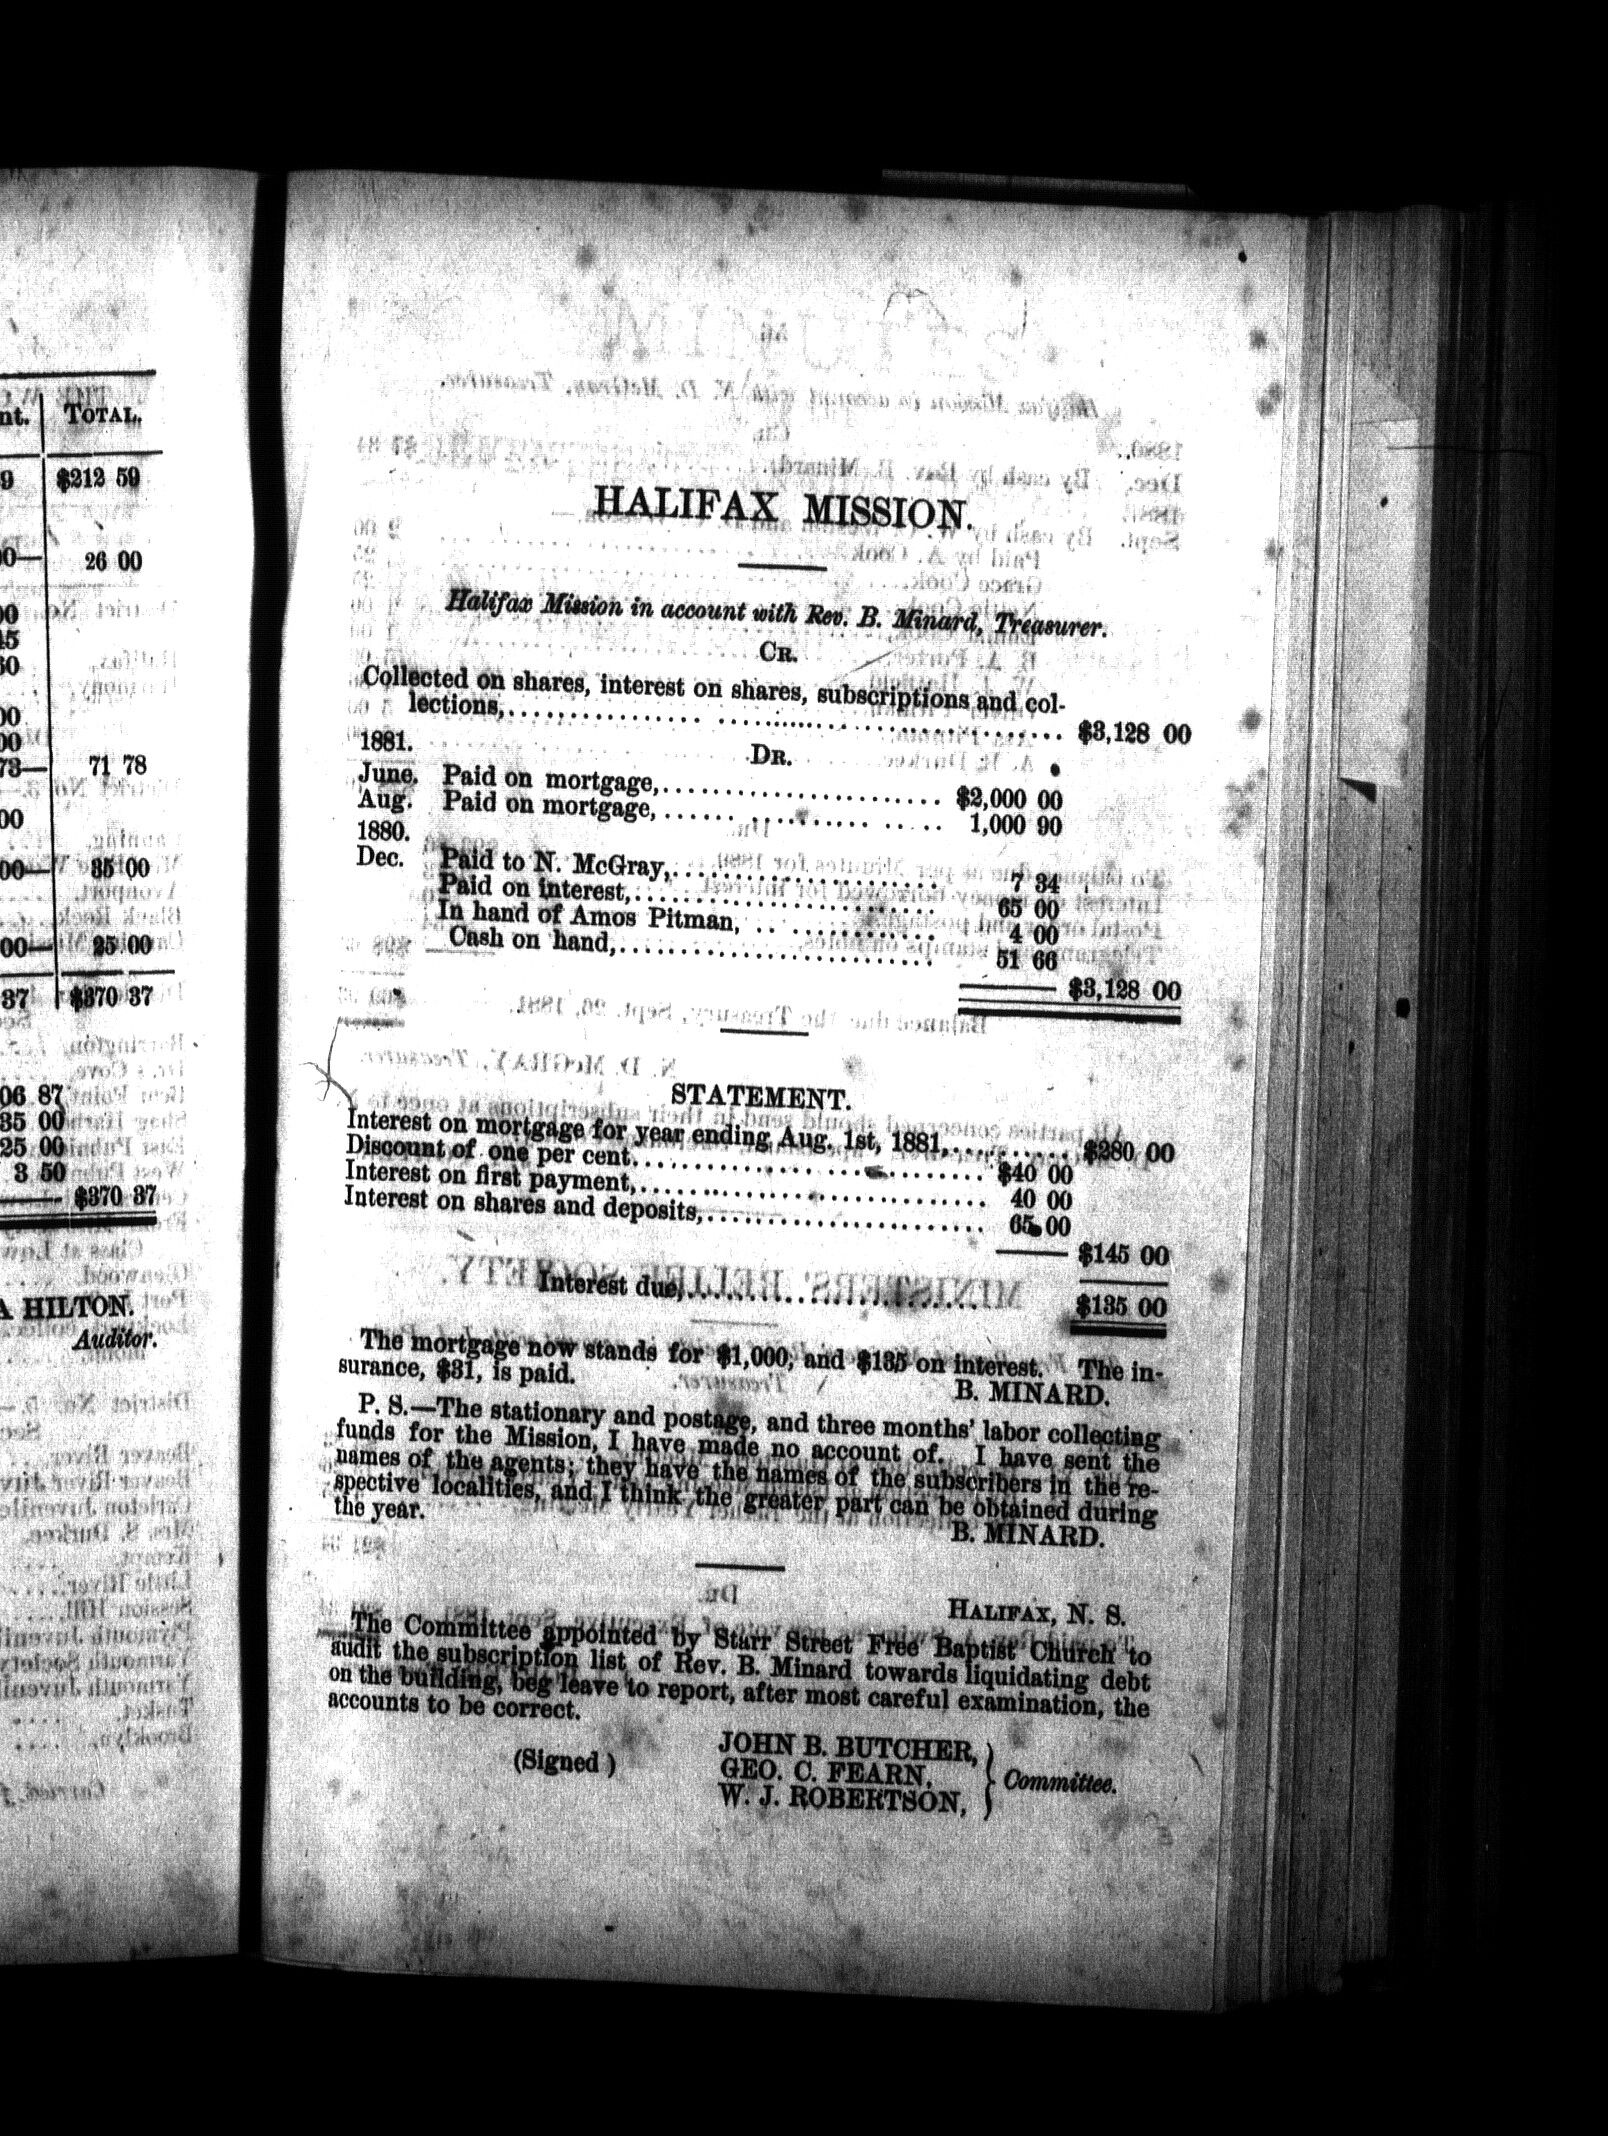 nt. TOTAL.
9 $212 59
00— 26 00
00
15
60
00
00
73— 71 78
00
00— 35 00
00— 25 00
37 $370 37
06 87
35 00
25 00
3 50
$370 37
A HILTON.
Auditor.
HALIFAX MISSION.
Halifax Mission in account with Rev. B. Minard, Treasurer.
CR.
Collected on shares, interest on shares, subscriptions and col-
lections,.................................... $3,128 00
1881. DR.
June. Paid on mortgage,...................... $2,000 00
Aug. Paid on mortgage, ...................... 1,000 90
1880.
Dec. Paid to N. McGray,...................... 7 34
Paid on interest,.......................... 65 00
In hand of Amos Pitman, .................. 4 00
Cash on hand,.......................... 51 66
$3,128 00
STATEMENT.
Interest on mortgage for year ending Aug. 1st, 1881,.......... $280 00
Discount of one per cent............................ $40 00
Interest on first payment,............................ 40 00
Interest on shares and deposits,....................... 65 00
$145 00
Interest due,........................ $135 00
The mortgage now stands for $1,000, and $135 on interest. The in-
surance, $31, is paid.
B. MINARD.
P. S.—The stationary and postage, and three months' labor collecting
funds for the Mission, I have made no account of. I have sent the
names of the agents; they have the names of the subscribers in the re-
spective localities, and I think the greater part can be obtained during
the year.
B. MINARD.
HALIFAX, N. S.
The Committee appointed by Starr Street Free Baptist Church to
audit the subscription list of Rev. B. Minard towards liquidating debt
on the building, beg leave to report, after most careful examination, the
accounts to be correct.
(Signed)
JOHN B. BUTCHER,
GEO. C. FEARN,
W. J. ROBERTSON,
Committee.